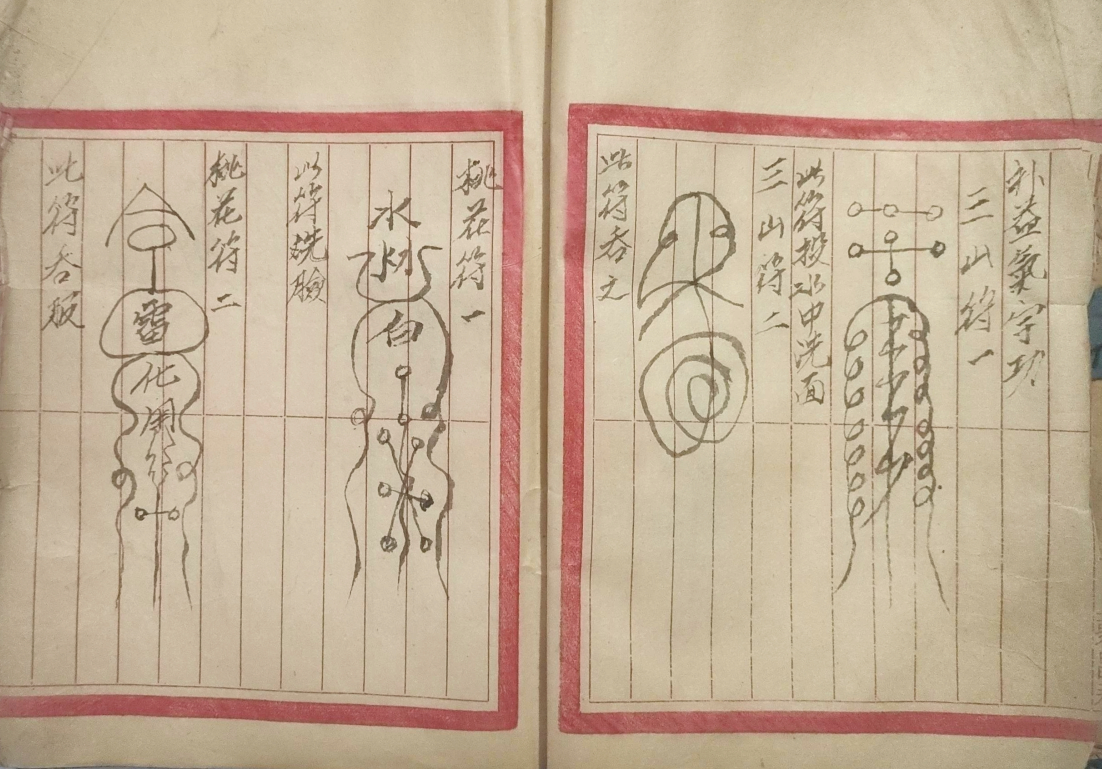 补益氣字功
三山符一
此符投水中洗面
三山符二
此符吞之
桃花符一
水
火
白
此符洗臉
桃花符二
合
雷
化
用
此符吞服